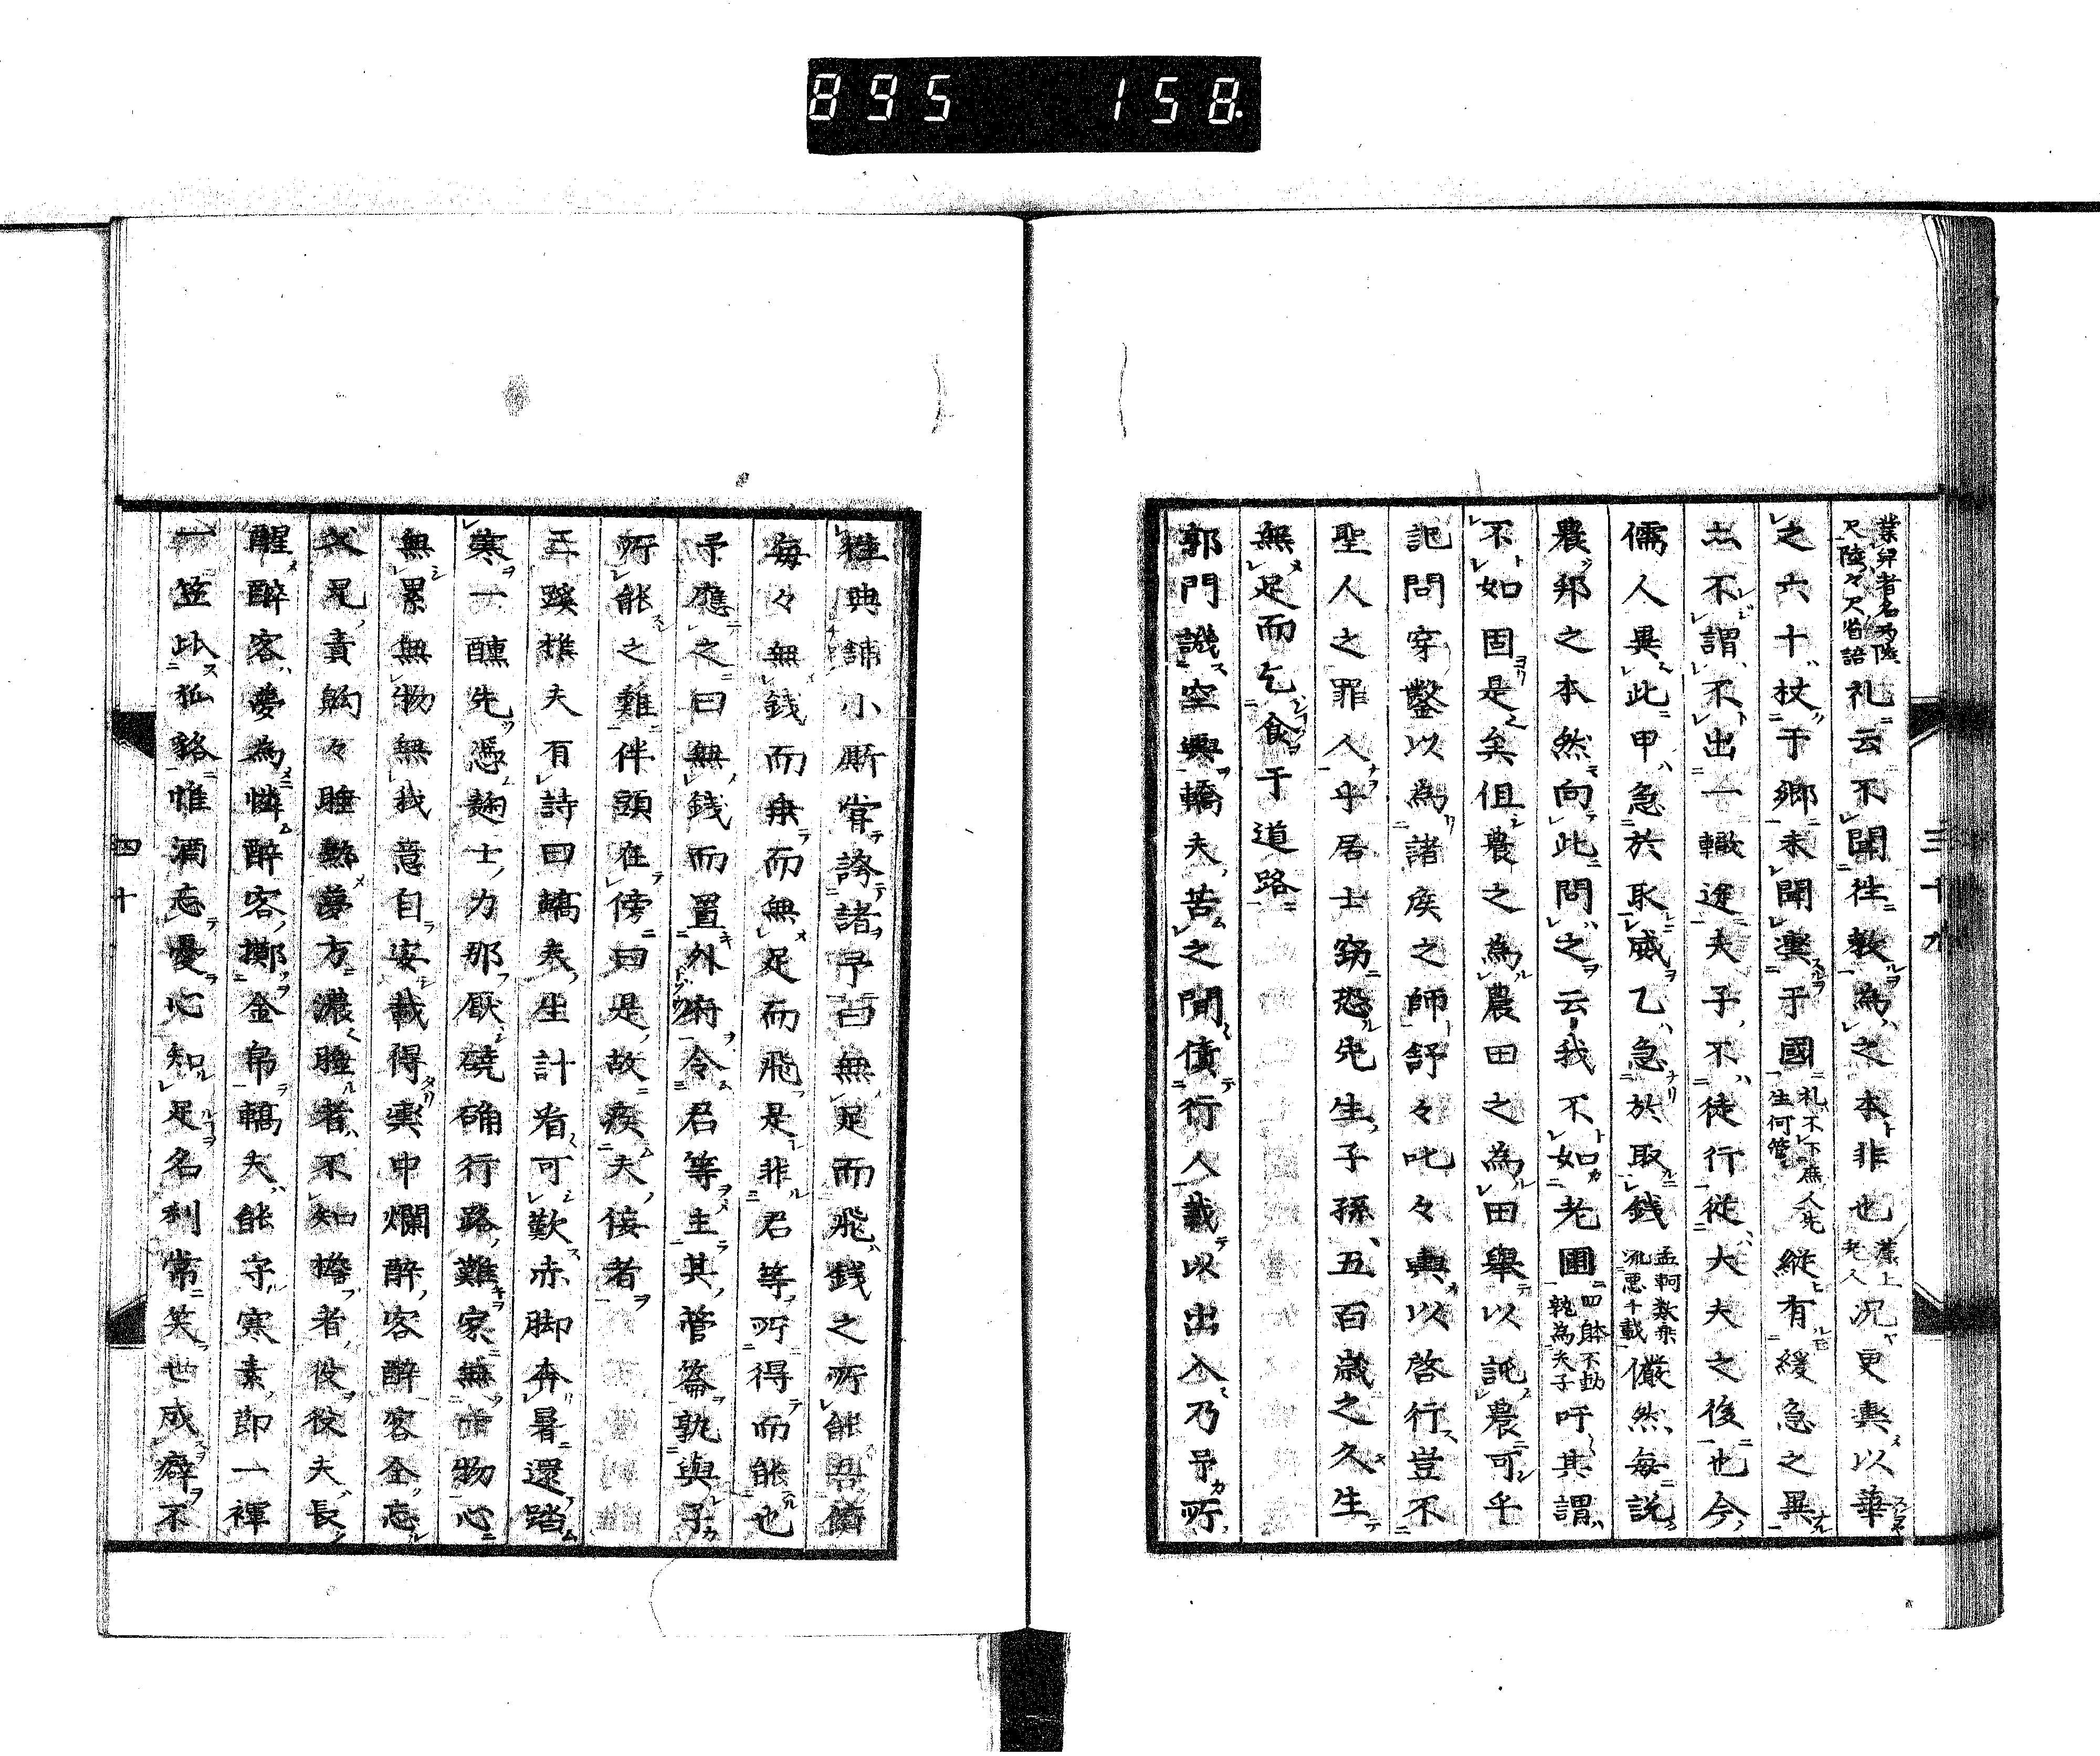 895 158
業舁者名为陸尺陸々尺省語礼云不聞往教為之本非也況更輿以華
之六十杖于郷未聞輿于國礼不下庶人先生何管縦有緩急之異
亦不謂不出一轍途夫子不徒行従大夫之後也今
儒人異此甲急於取威乙急於取銭孟軻数乘儼然每説
農邦之本然向此問之云我不如老圃四體不動孰為夫子吁其謂
不如固是矣但農之為農田之為田舉以託農可乎
訑問穿鑿以為諸矦之師訏々叱々輿以啓行豈不
聖人之罪人乎居士竊恐先生子孫五百歳之久生
無足而乞食于道路
郭門譏空輿轎夫苦之間債行人載以出入乃予所
三十九
往典鋪小厮甞誇諸予曰無足而飛銭之所能吾儕
每々無銭而乗而無足而飛是非君等所得而能也
予應之曰無銭而置外府令君等主其管籥孰與子
所能之難伴頭在傍曰是故疾夫倿者
五蹊樵夫有詩曰轎夫生計看可歎赤脚奔暑還踏
寒一醺先憑麹士力那厭磽确行路難家無物心
無累無物無我意自安載得輿中爛醉客醉客全忘
我兄責齁々睡熟夢方濃睡者不知擔者役役夫長
醒醉客夢為憐醉客擲金帛轎夫能守寒素即一褌
一笠此狐貉惟酒忘憂心知足名利常笑世成癖不
四十